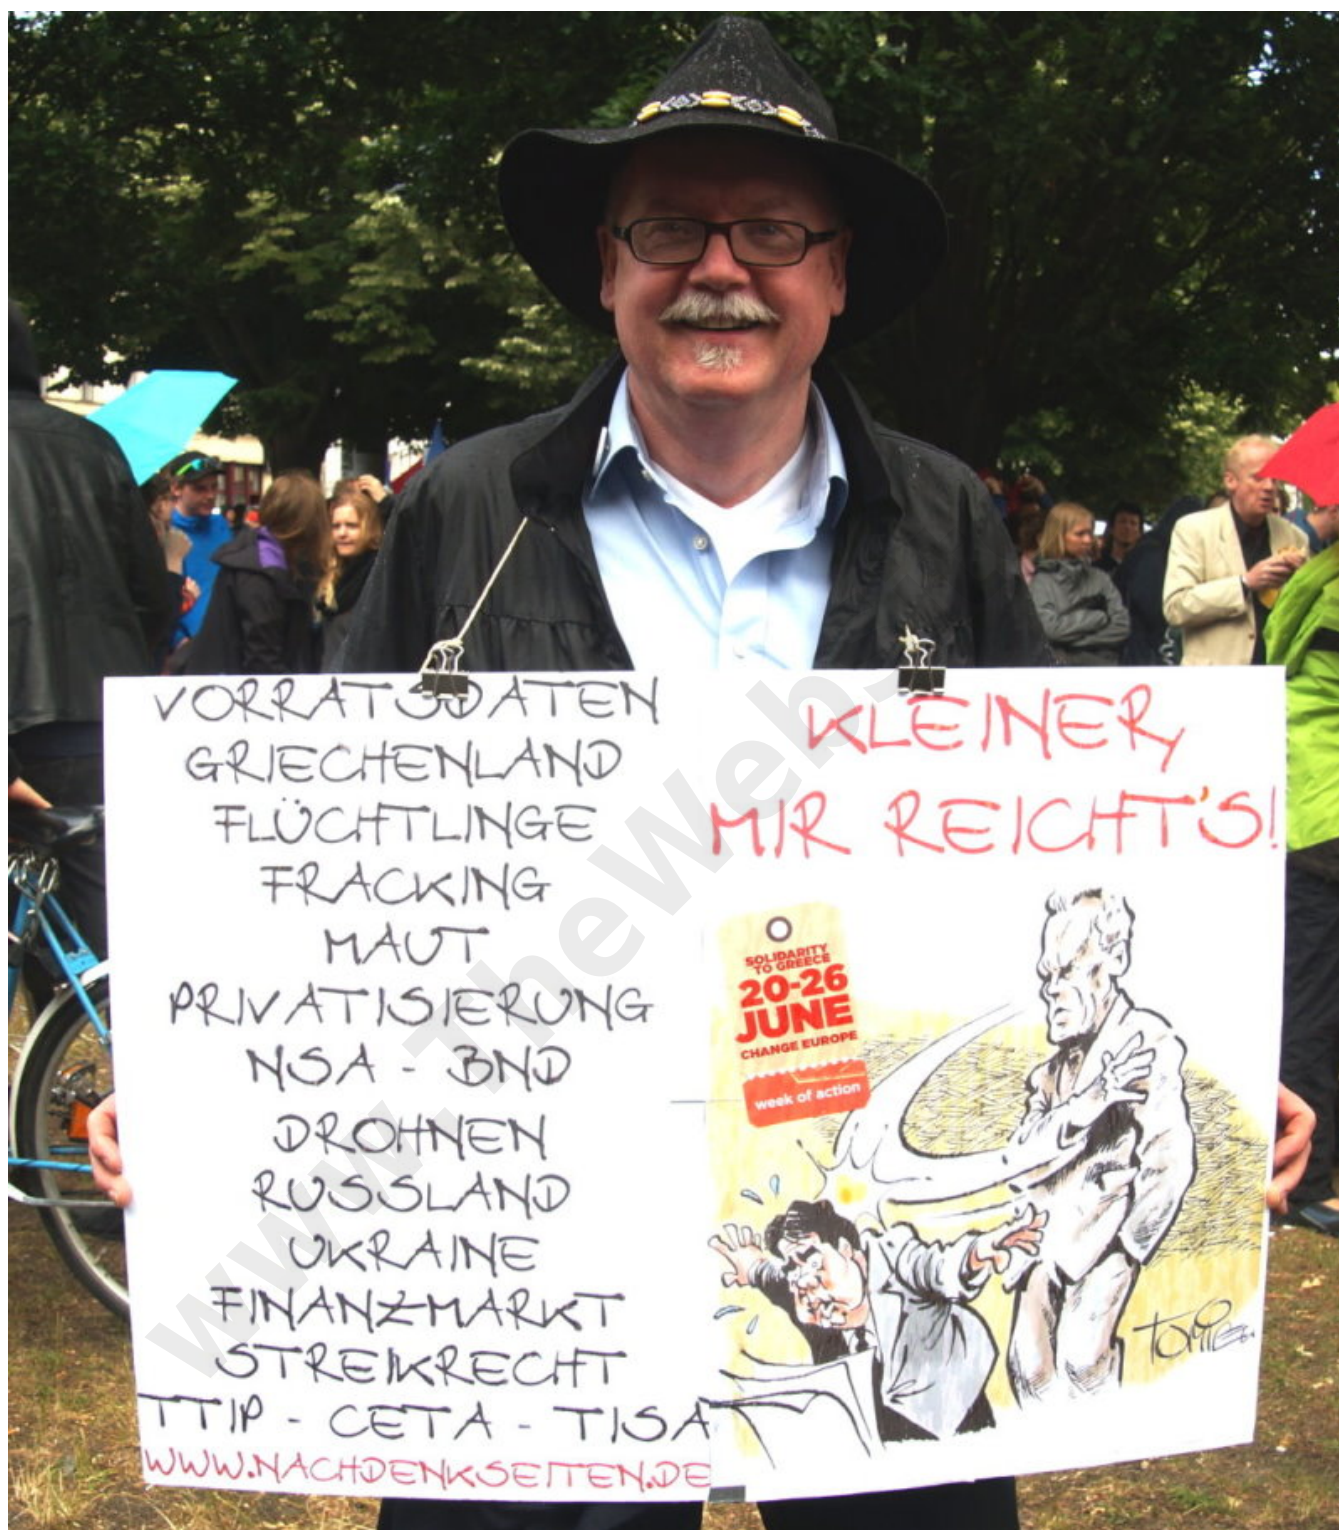 VORRATSDATEN
GRIECHENLAND
FLÜCHTLINGE
FRACKING
MAUT
PRIVATISIERUNG
NSA - BND
DROHNEN
RUSSLAND
UKRAINE
FINANZMARKT
STREIKRECHT
TTIP - CETA - TISA
WWW.NACHDENKSEITEN.DE
KLEINER,
MIR REICHT'S!
SOLIDARITY
TO GREECE
20-26
JUNE
CHANGE EUROPE
week of action
TOMIE
www.TheWeb-